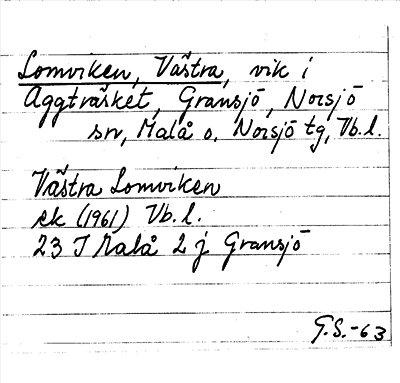 Lomviken, Västra, vik i
Aggträsket, Gransjö, Norsjö
sn, Malå o. Norsjö tg, Vb.l.
Västra Lomviken
ek (1961) Vb.l.
23 J Malå 2 j Gransjö
G.S.-63